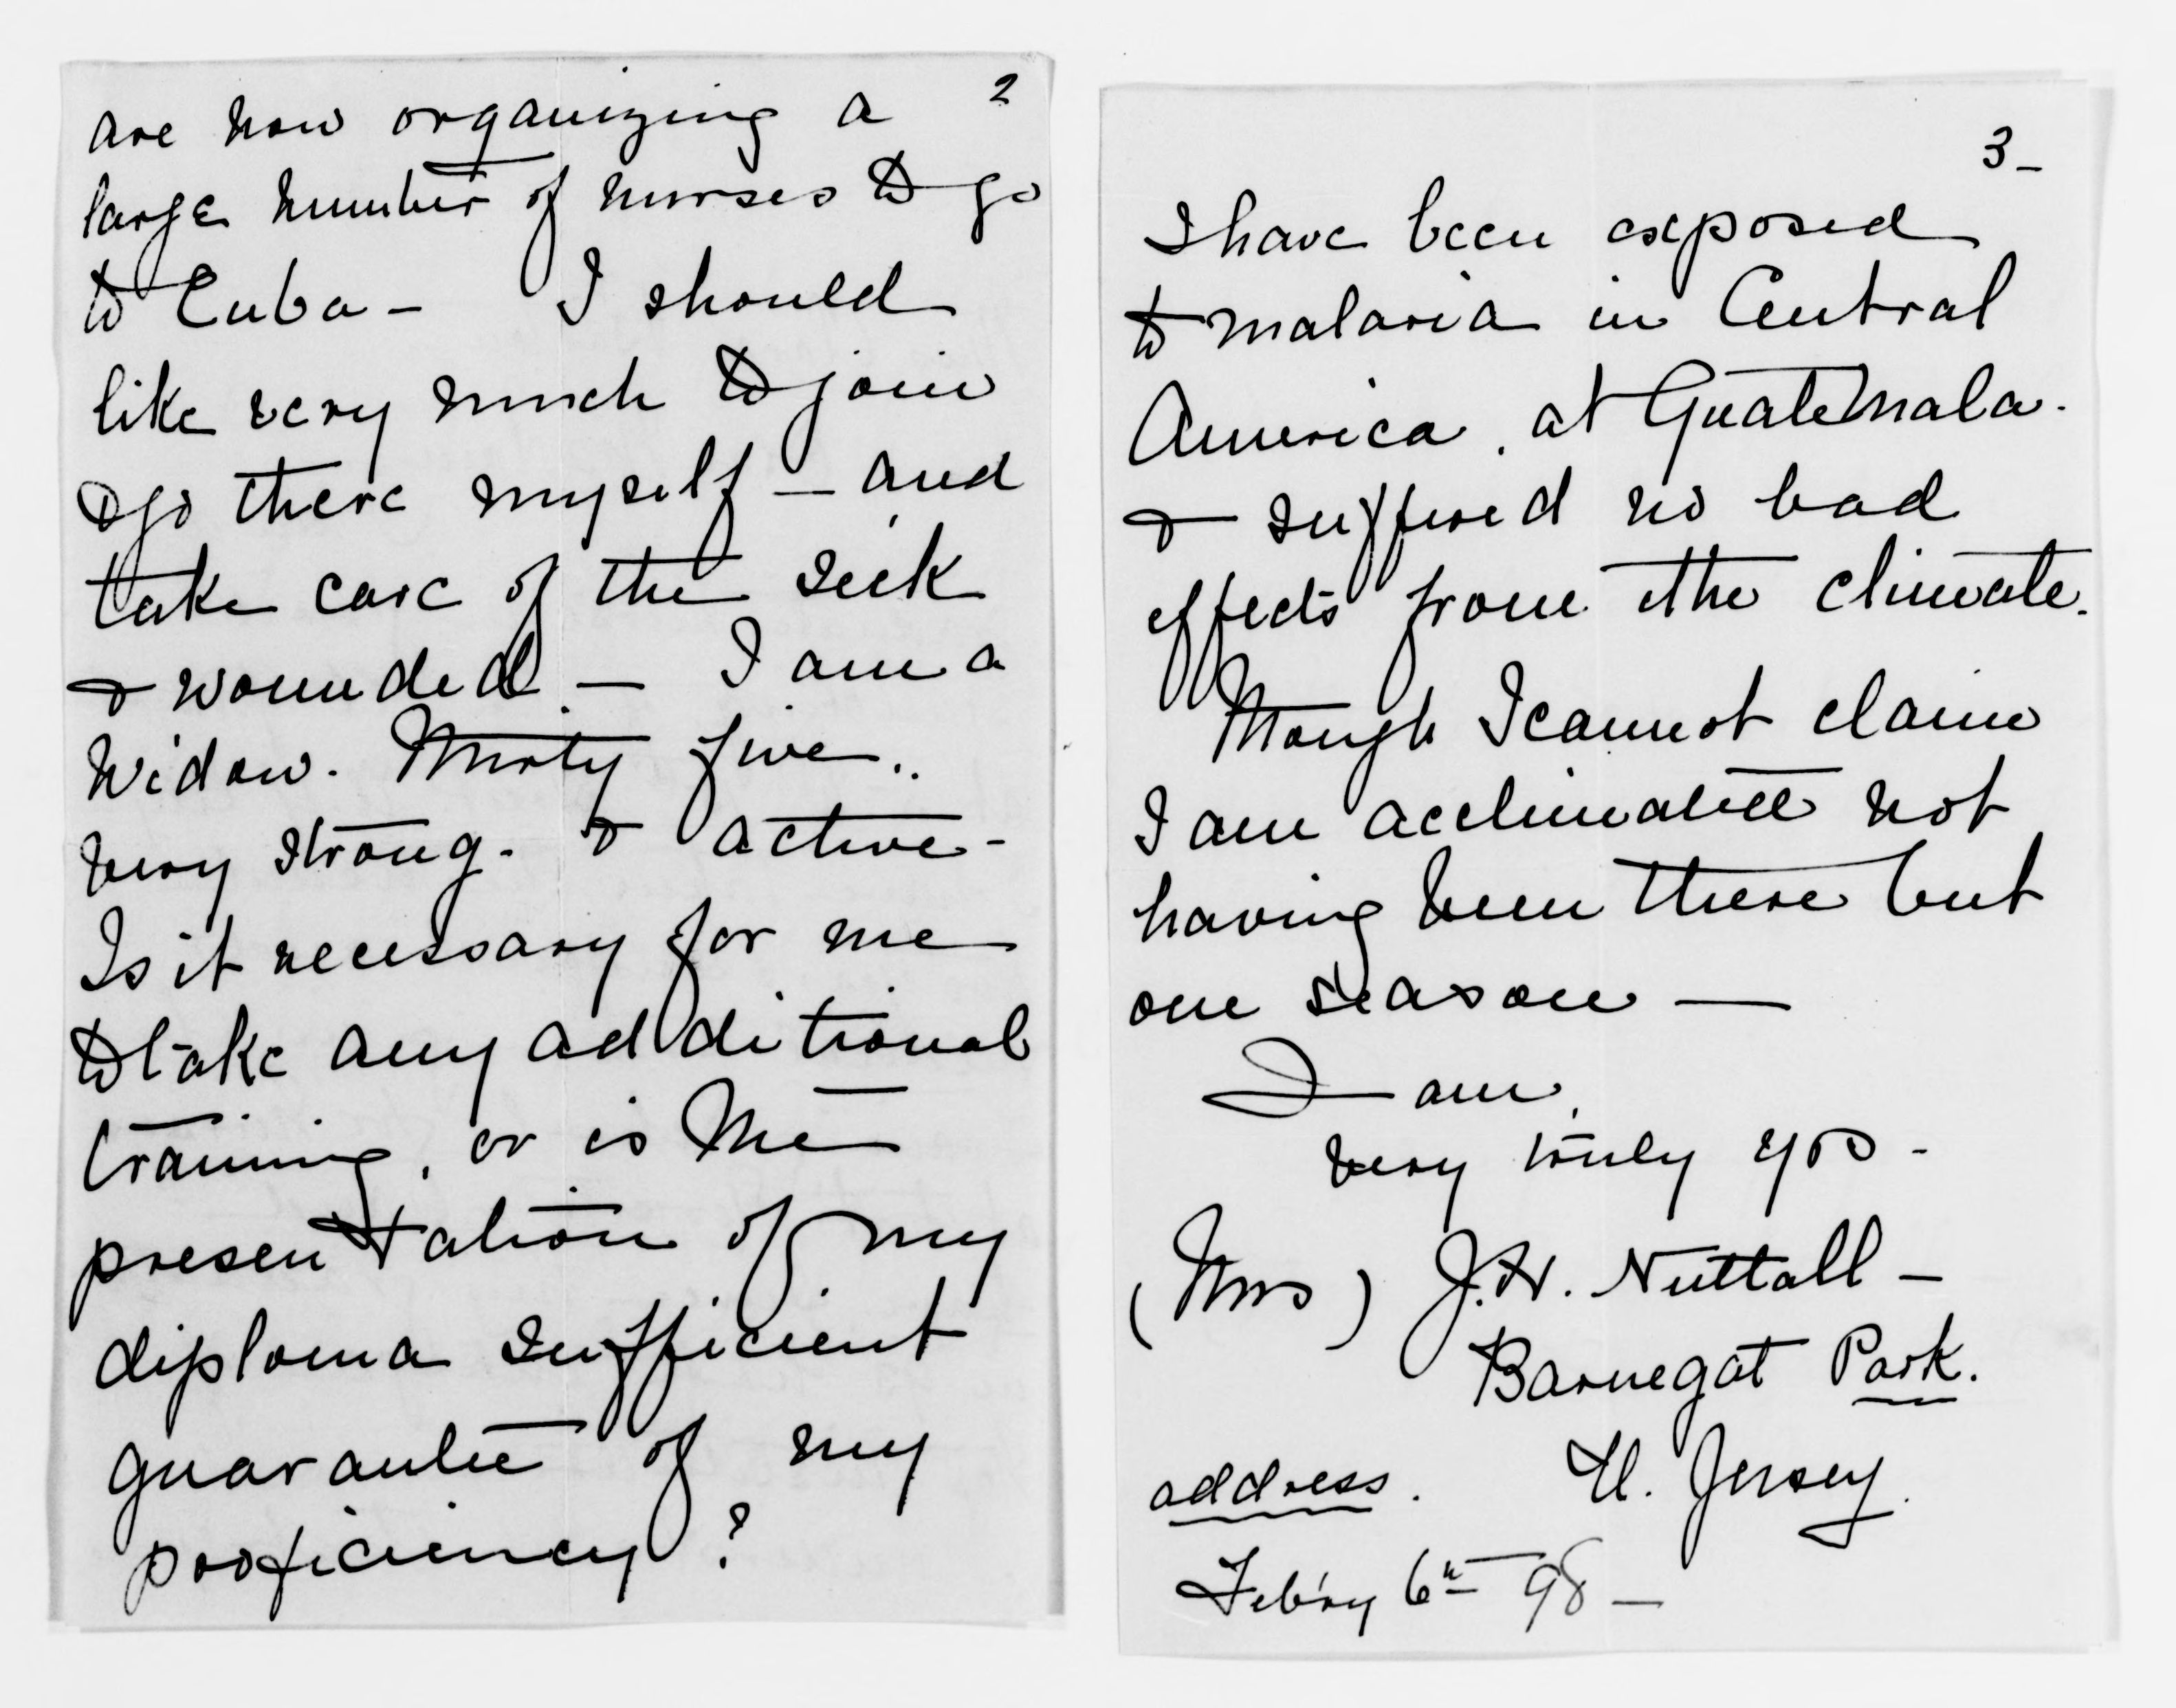 2
are now organizing a
large number of nurses to go
to Cuba - I should
like very much to join
& go there myself - and
take care of the sick
& wounded - I am a
Widow. Thirty five..
very strong. & active -
Is it necessary for me
to take any additional
training, or is the
presentation of my
diploma sufficient
guarantee of my
proficiency?
3 -
I have been exposed
to malaria in Central
America, at Guatemala.
& suffered no bad
effects from the climate.
Though I cannot claim
I am acclimated not
having been there but
one season —
I am,
very truly yrs -
(Mrs) J. H. Nuttall -
Barnegat Park.
address. N. Jersey.
Feb'ry 6th 98 -